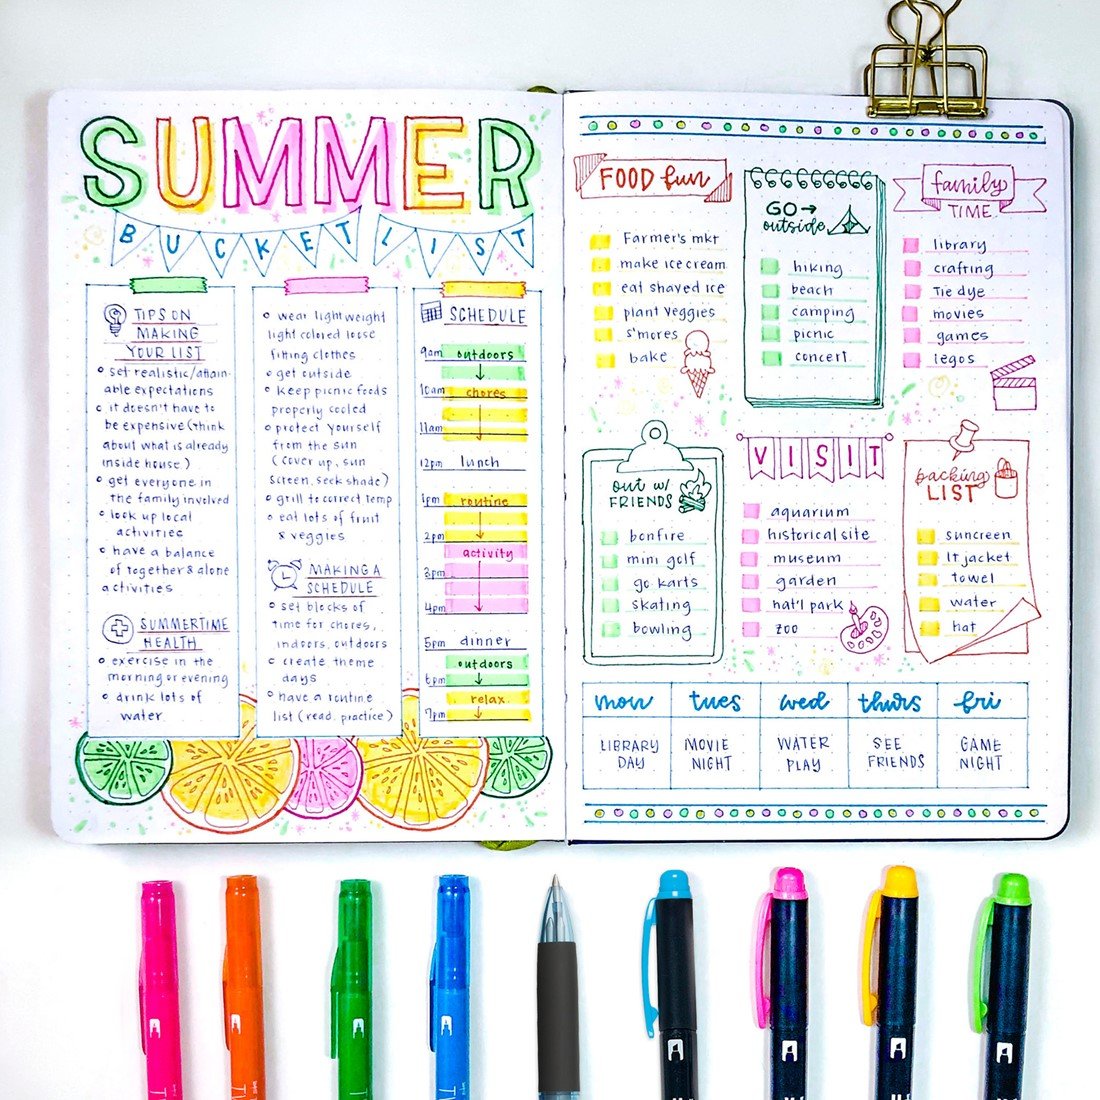 SUMMER
BUCKET LIST
TIPS ON
MAKING
YOUR LIST
set realistic/attain-
able expectations
it doesn't have to
be expensive (think
about what is already
inside house.)
get everyone in
the family involved
look up local
activities
have a balance
of together & alone
activities
SUMMERTIME
HEALTH
exercise in the
morning or evening
drink lots of
water
wear lightweight
light colored loose
fitting clothes
get outside
keep picnic foods
properly cooled
protect yourself
from the sun
(cover up, sun
screen, seek shade)
grill to correct temp
eat lots of fruit
& veggies
MAKING A
SCHEDULE
set blocks of
time for chores,
indoors, outdoors
create theme
days
have a routine
list (read, practice)
SCHEDULE
9am outdoors
10am chores
11am
12pm lunch
1pm routine
2pm
activity
3pm
4pm
5pm dinner
outdoors
6pm
relax
7pm
FOOD fun
Farmer's mkt
make ice cream
eat shaved ice
plant veggies
s'mores
bake
GO →
outside
hiking
beach
camping
picnic
concert
family
TIME
library
crafting
Tie dye
movies
games
legos
out w/
FRIENDS
bonfire
mini golf
go karts
skating
bowling
VISIT
aquarium
historical site
museum
garden
nat'l park
zoo
packing
LIST
suncreen
lt jacket
towel
water
hat
mon tues wed thurs fri
LIBRARY DAY
MOVIE NIGHT
WATER PLAY
SEE FRIENDS
GAME NIGHT